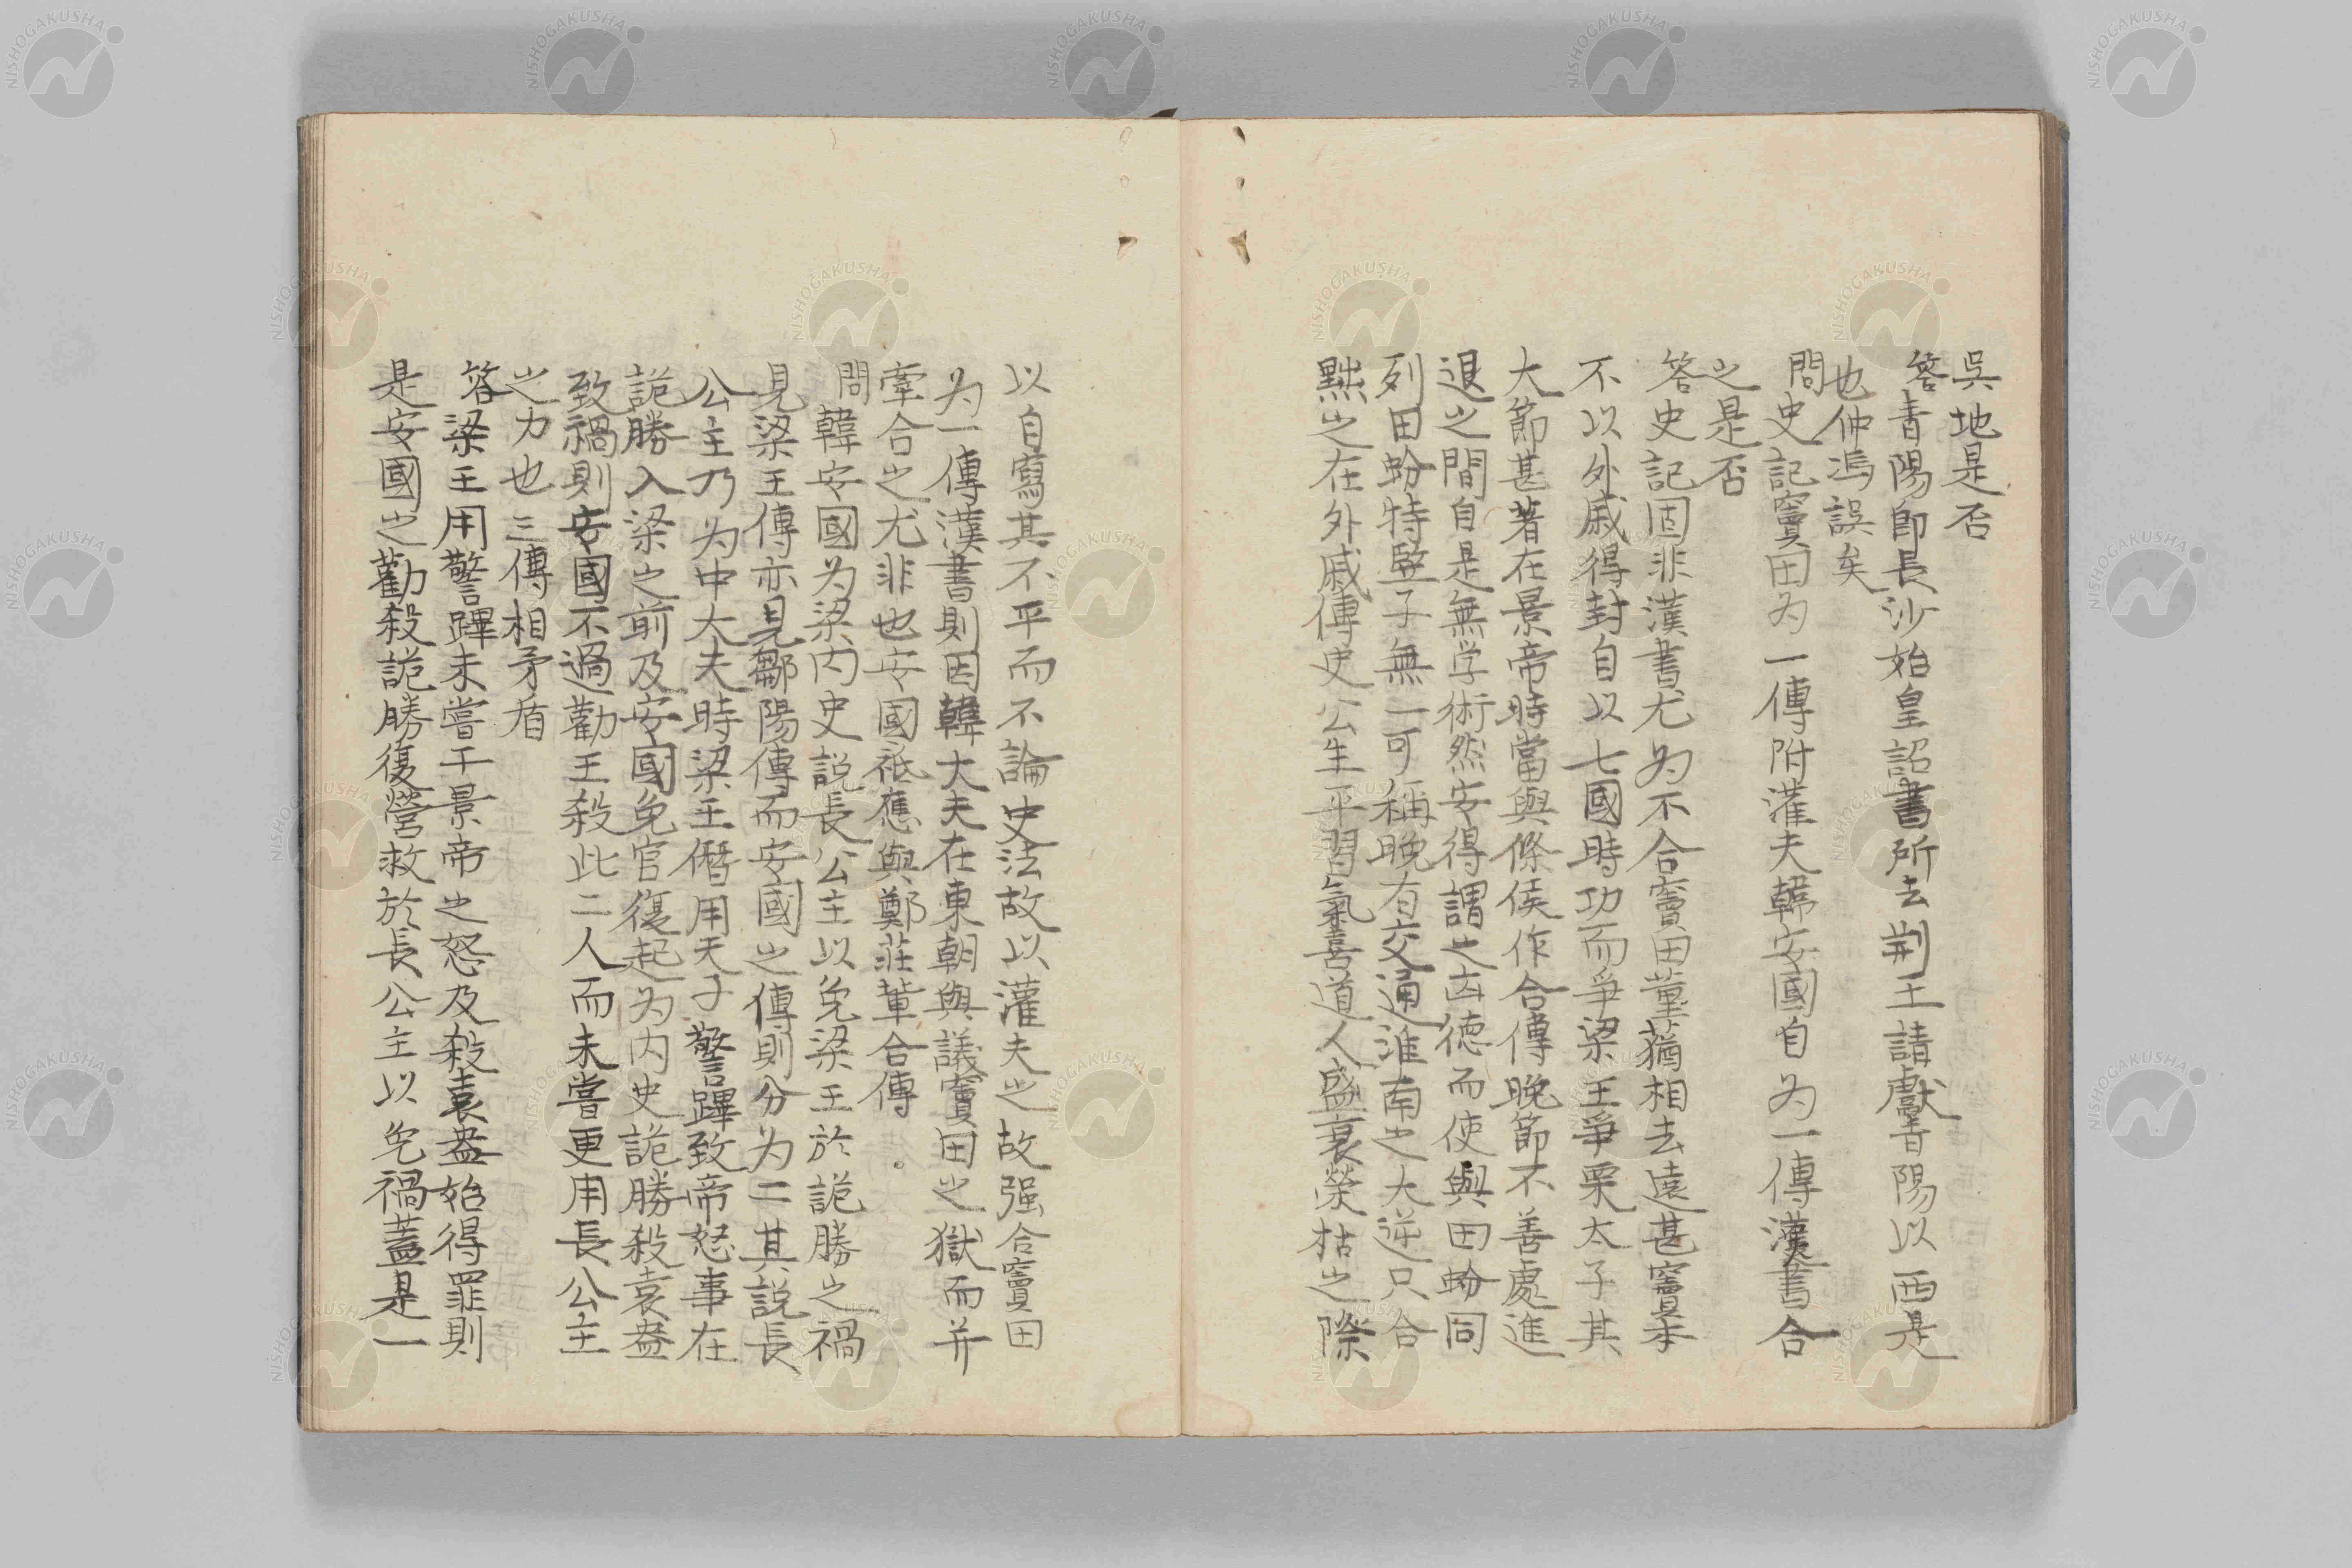 吳地是否
答青陽即長沙始皇詔書所去荆王請獻青陽以西是
也仲馮誤矣
問史記竇田为一傳附灌夫韓安國自为一傳漢書合
之是否
答史記固非漢書尤为不合竇田薰蕕相去遠甚竇本
不以外戚得封自以七國時功而爭梁王爭栗太子其
大節甚著在景帝時當與條侯作合傳晚節不善處進
退之間自是無学術然安得謂之凶德而使與田蚡同
列田蚡特竪子無一可稱晚有交通淮南之大逆只合
黜之在外戚傳史公生平習氣喜道人盛衰榮枯之際
以自寫其不平而不論史法故以灌夫之故强合竇田
为一傳漢書則因韓大夫在東朝與議竇田之獄而并
牽合之尤非也安國祗應與鄭莊輩合傳。
問韓安國为梁内史說長公主以免梁王於詭勝之禍
見梁王傳亦見鄒陽傳而安國之傳則分为二其說長
公主乃为中大夫時梁王僭用天子警蹕致帝怒事在
詭勝入梁之前及安國免官復起为内史詭勝殺袁盎
致禍則安國不過勸王殺此二人而未嘗更用長公主
之力也三傳相矛盾
答梁王用警蹕未嘗干景帝之怒及殺袁盎始得罪則
是安國之勸殺詭勝復營救於長公主以免禍蓋是一